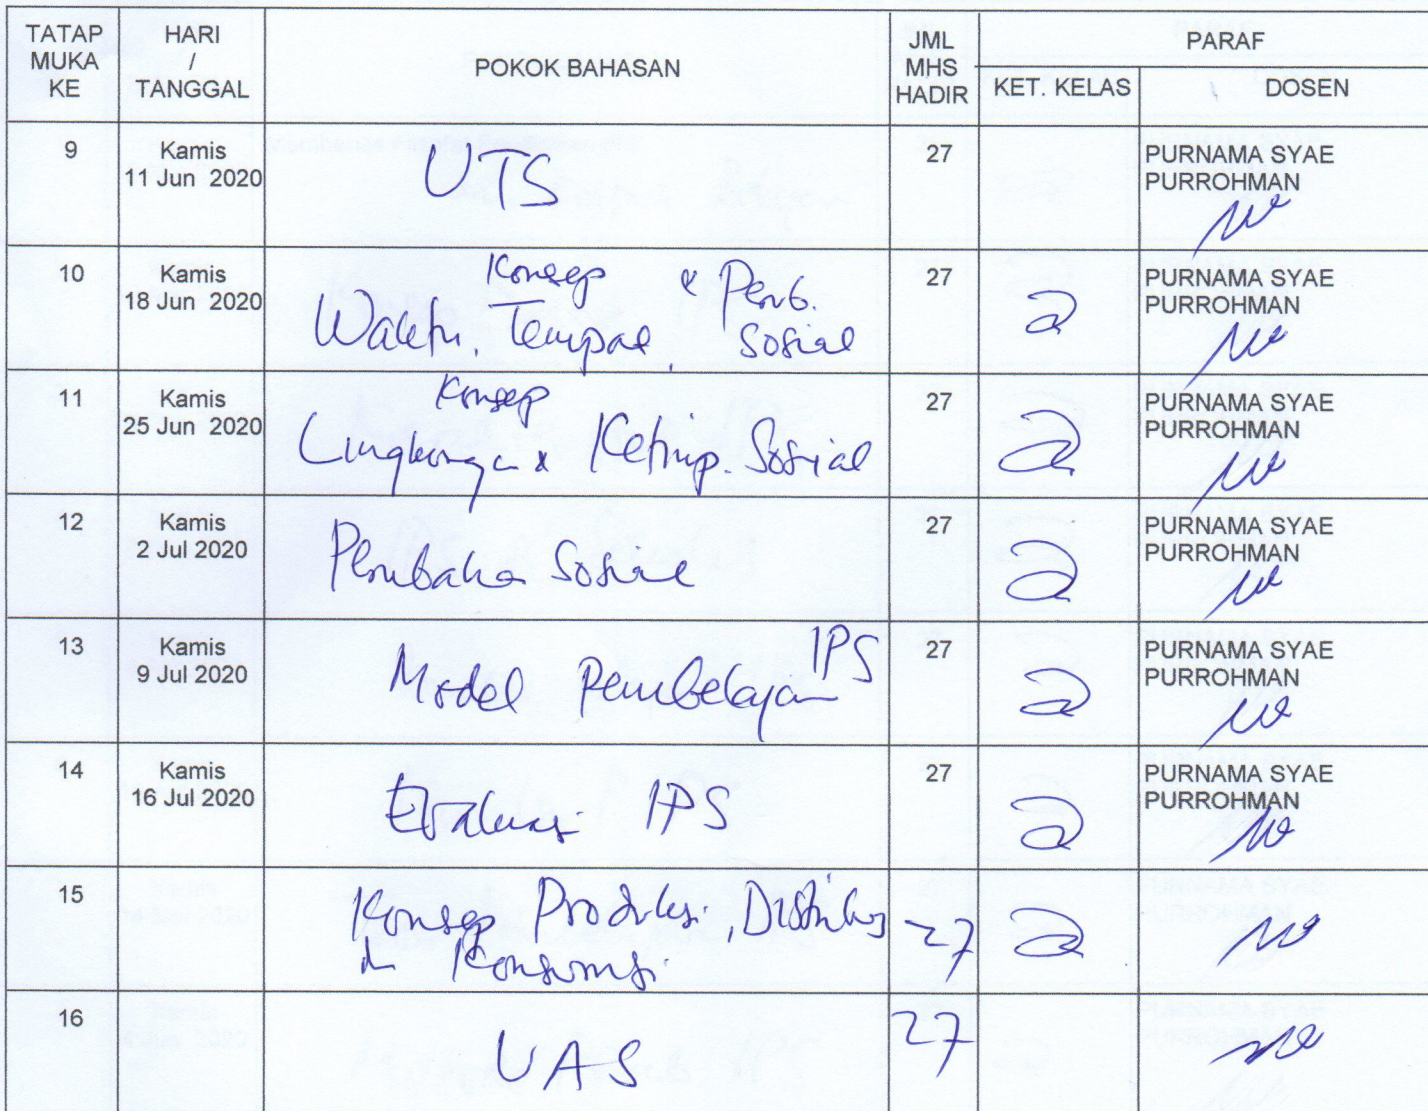 TATAP MUKA KE HARI / TANGGAL POKOK BAHASAN JML MHS HADIR PARAF
KET. KELAS DOSEN
9 Kamis 11 Jun 2020 UTS 27 PURNAMA SYAE PURROHMAN
10 Kamis 18 Jun 2020 Konsep Waktu, Tempat, & Perub. Sosial 27 PURNAMA SYAE PURROHMAN
11 Kamis 25 Jun 2020 Konsep Lingkungan & Ketimp. Sosial 27 PURNAMA SYAE PURROHMAN
12 Kamis 2 Jul 2020 Perubahan Sosial 27 PURNAMA SYAE PURROHMAN
13 Kamis 9 Jul 2020 Model Pembelajaran IPS 27 PURNAMA SYAE PURROHMAN
14 Kamis 16 Jul 2020 Evaluasi IPS 27 PURNAMA SYAE PURROHMAN
15 Konsep Produksi, Distribusi dn Konsumsi 27
16 UAS 27